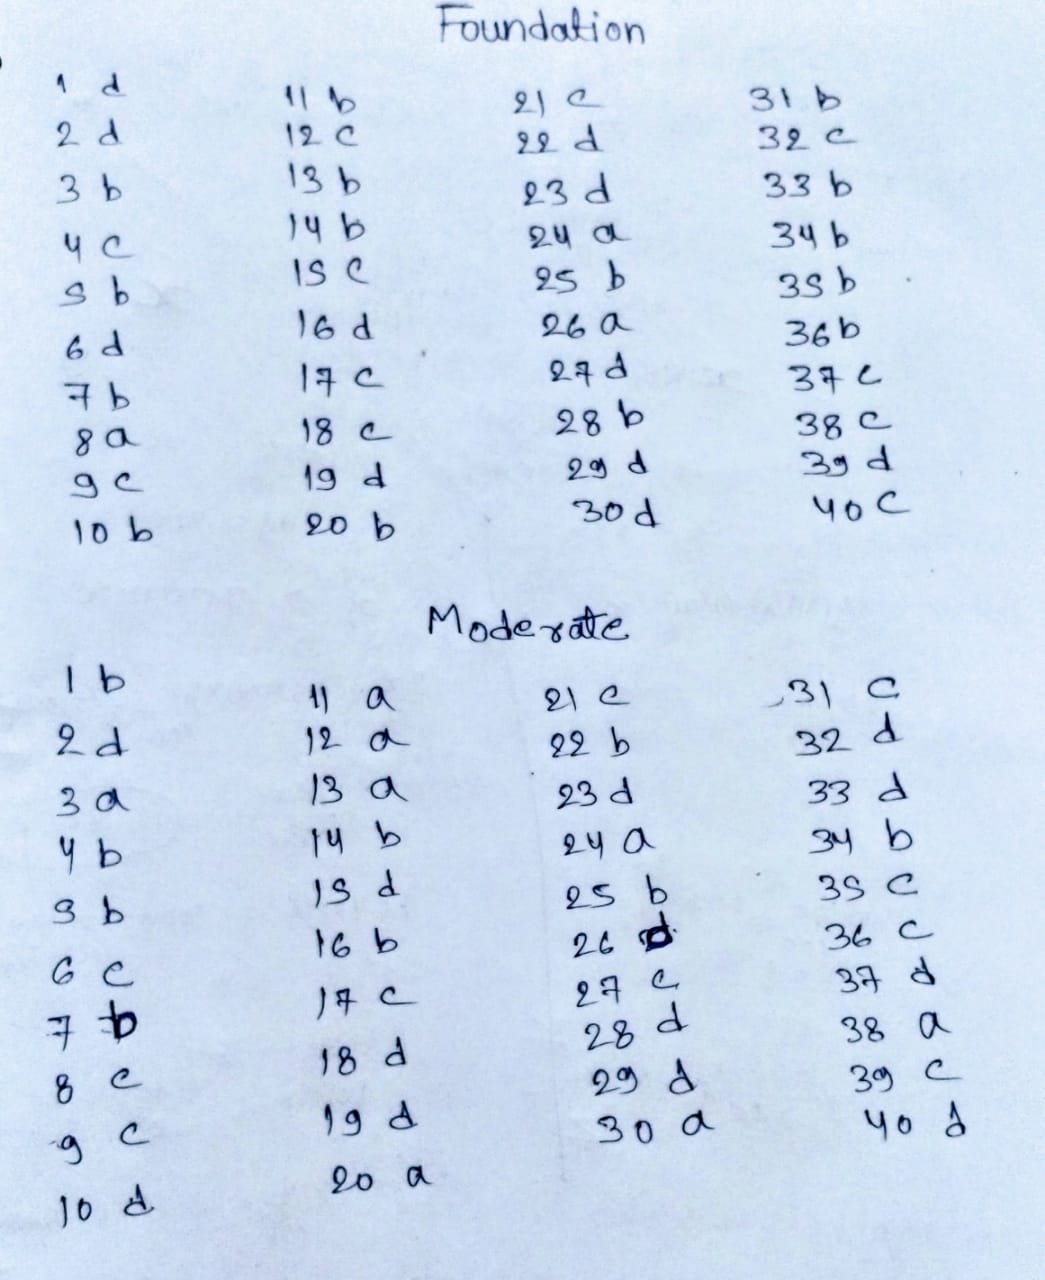 Foundation
1 d
2 d
3 b
4 c
5 b
6 d
7 b
8 a
9 c
10 b
11 b
12 c
13 b
14 b
15 c
16 d
17 c
18 c
19 d
20 b
21 c
22 d
23 d
24 a
25 b
26 a
27 d
28 b
29 d
30 d
31 b
32 c
33 b
34 b
35 b
36 b
37 c
38 c
39 d
40 c
Moderate
1 b
2 d
3 a
4 b
5 b
6 c
7 b
8 c
9 c
10 d
11 a
12 a
13 a
14 b
15 d
16 b
17 c
18 d
19 d
20 a
21 c
22 b
23 d
24 a
25 b
26 d
27 c
28 d
29 d
30 a
31 c
32 d
33 d
34 b
35 c
36 c
37 d
38 a
39 c
40 d